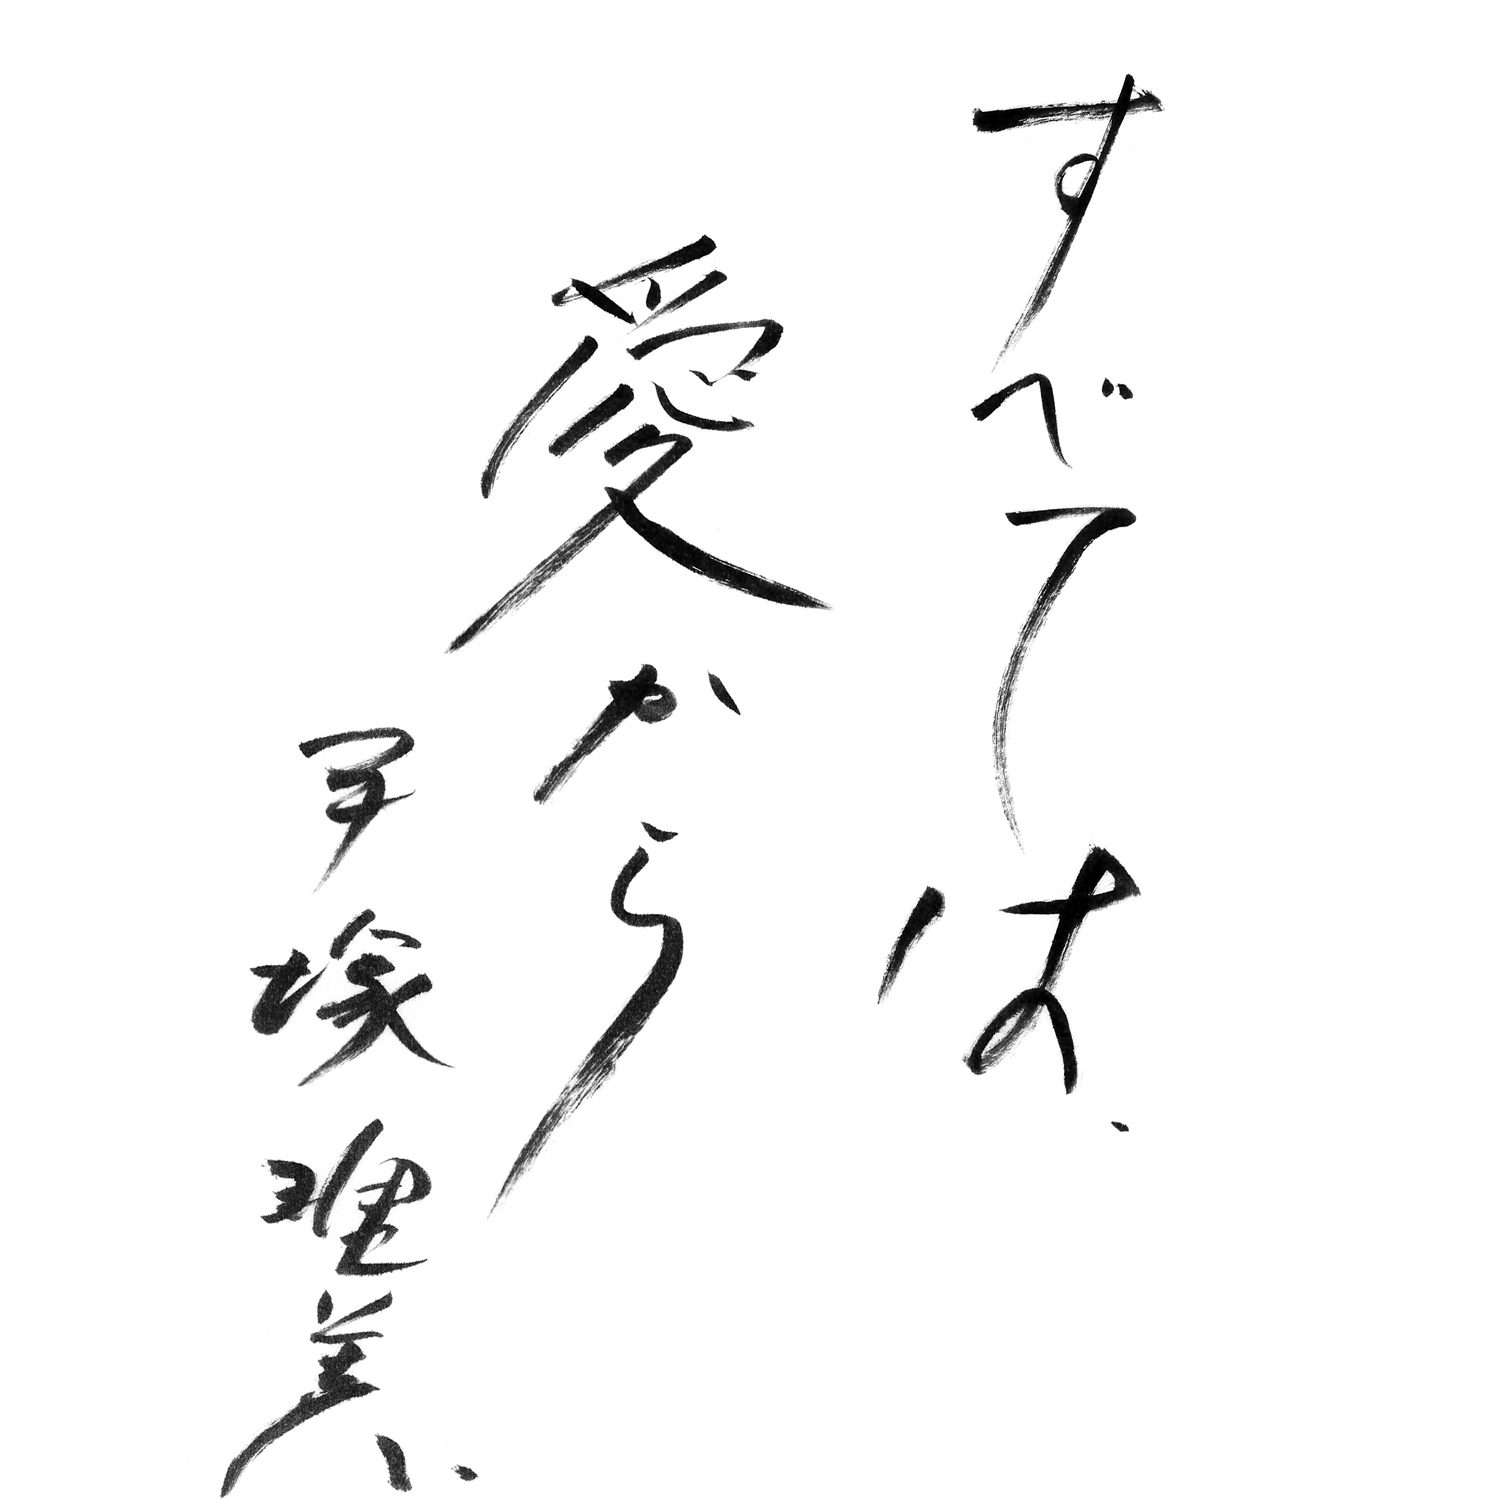 すべては、
愛から
手塚理美.